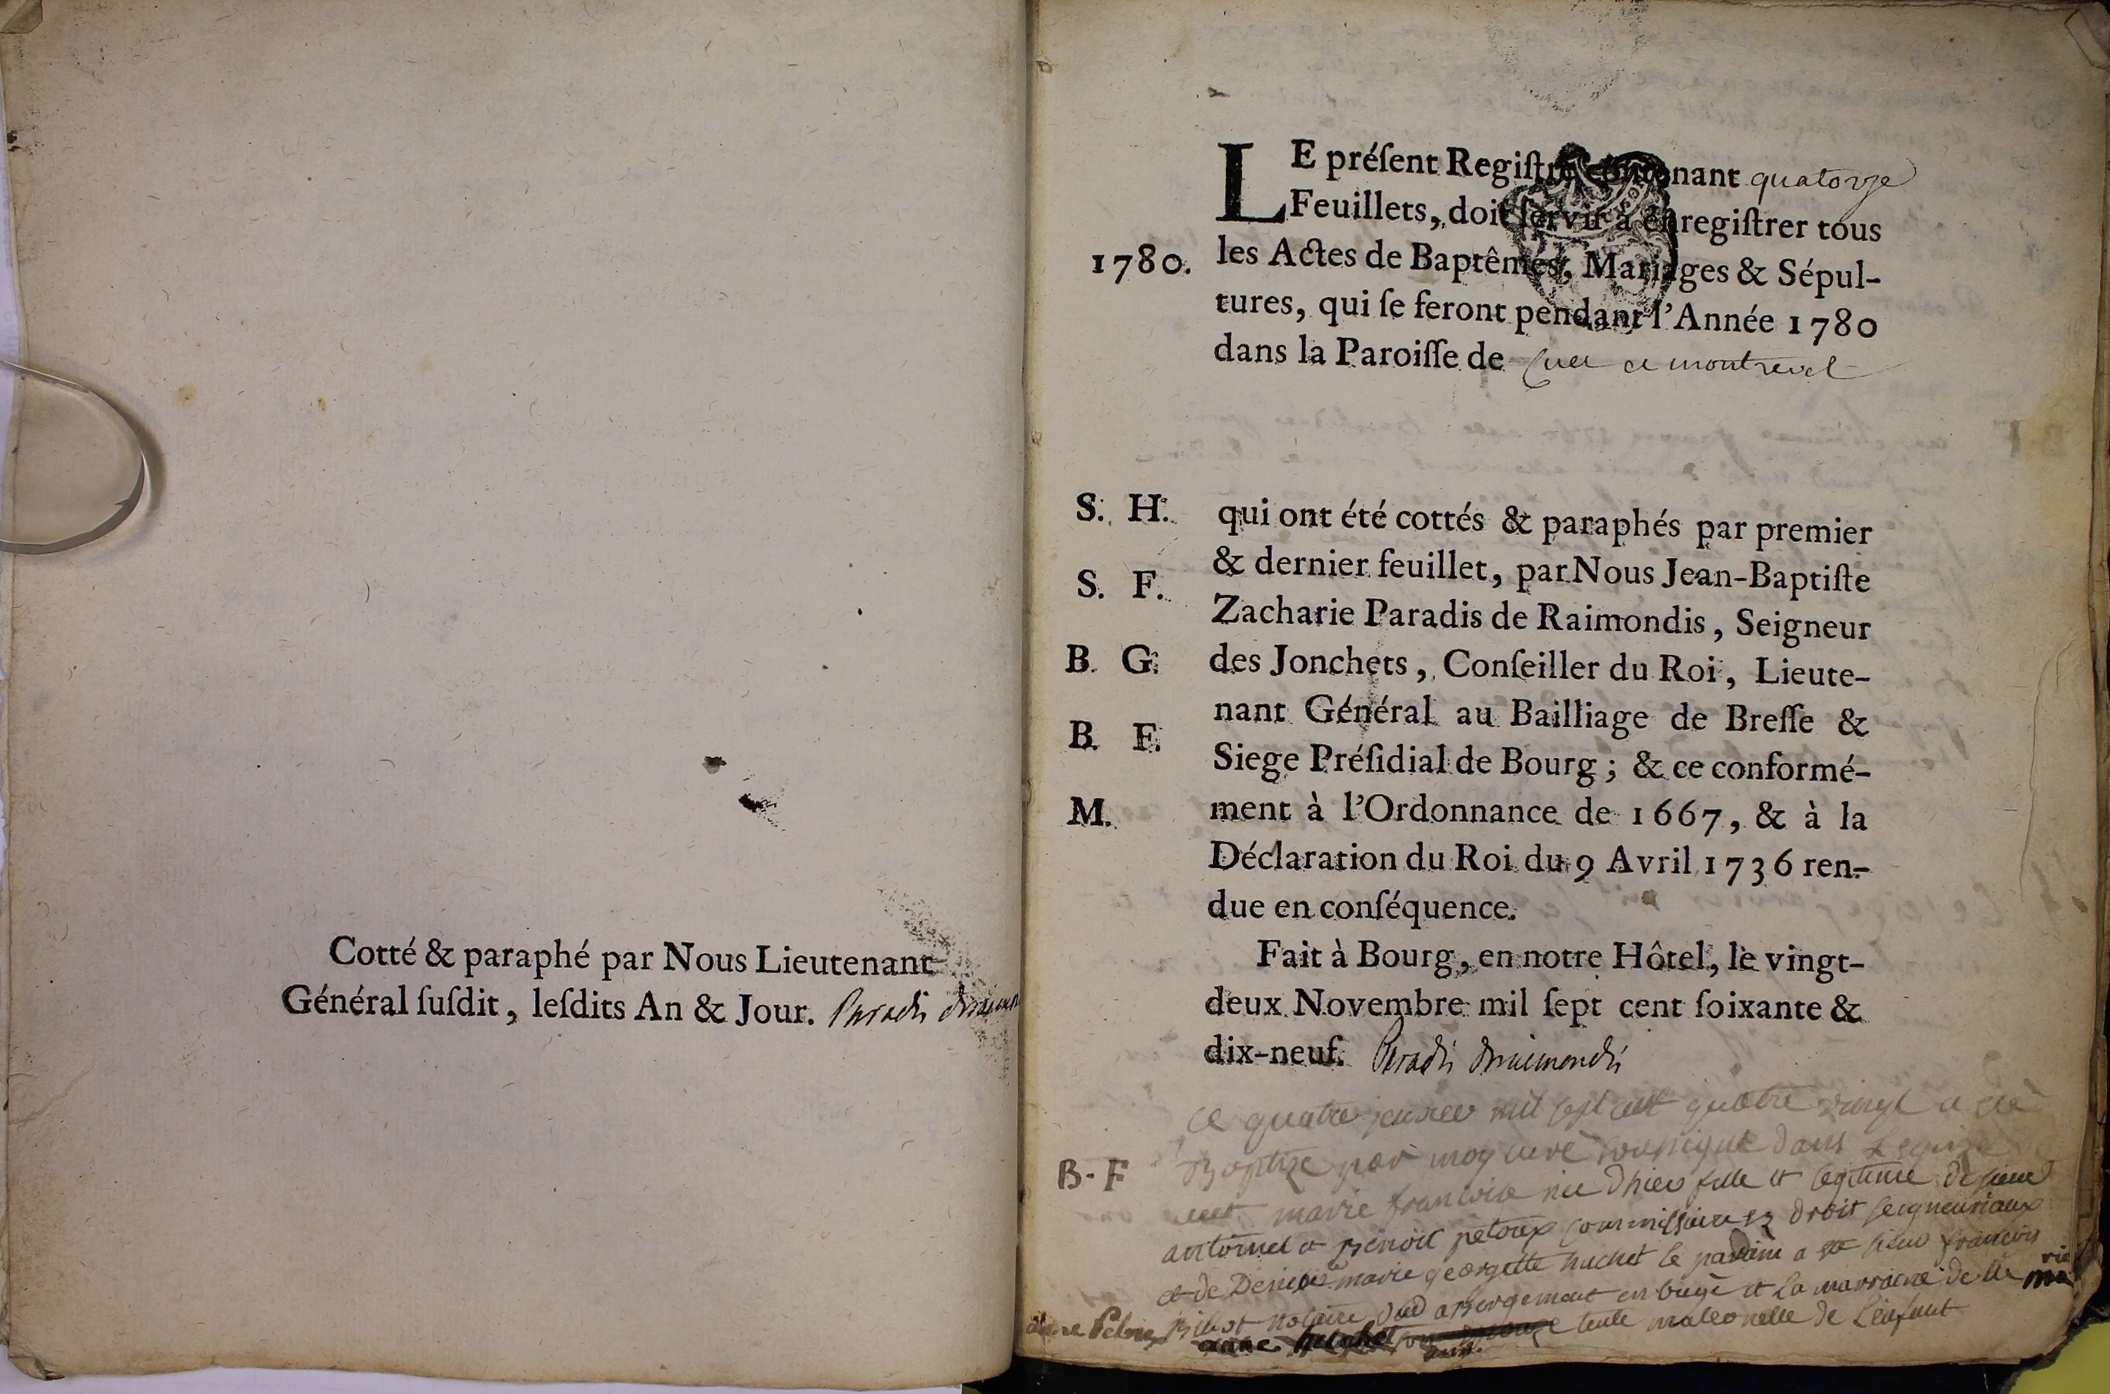 Cotté & paraphé par Nous Lieutenant
Général ſuſdit, leſdits An & Jour. Paradis
LE préſent Regiſtre contenant quatorze
Feuillets, doit ſervir à enregiſtrer tous
1780.
les Actes de Baptêmes, Mariages & Sépul-
tures, qui ſe feront pendant l'Année 1780
dans la Paroiſſe de Cuet et montrevel
S. H.
qui ont été cottés & paraphés par premier
& dernier feuillet, par Nous Jean-Baptiſte
S. F.
Zacharie Paradis de Raimondis, Seigneur
B. G.
des Jonchets, Conſeiller du Roi, Lieute-
nant Général au Bailliage de Breſſe &
B. F.
Siege Préſidial de Bourg ; & ce conformé-
M.
ment à l'Ordonnance de 1667, & à la
Déclaration du Roi du 9 Avril 1736 ren-
due en conſéquence.
Fait à Bourg, en notre Hôtel, le vingt-
deux Novembre mil ſept cent ſoixante &
dix-neuf. Paradis deraimondis
ce quatre mil sept cent quatre vingt a été
B - F
Baptize par moy curé soussigné dans
marie francoise nee dhier fille et legitime de sieur
benoit petoux commissaire droit seigneuriaux
et de marie georgette huchet le parain a francois
notaire et la marraine delle ma
rie
anne huchet tente maternelle de l'enfant